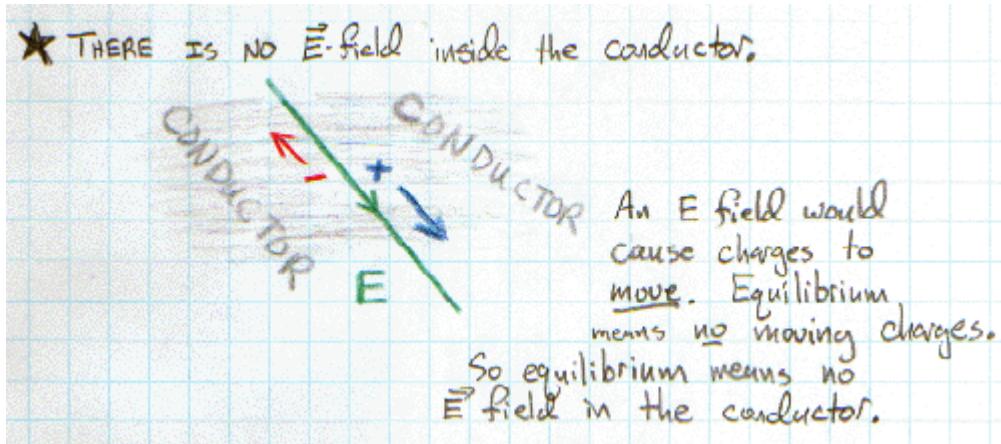 ★ THERE IS NO E-field inside the conductor.
CONDUCTOR
CONDUCTOR
-
+
E
An E field would
cause charges to
move. Equilibrium
means no moving charges.
So equilibrium means no
E field in the conductor.